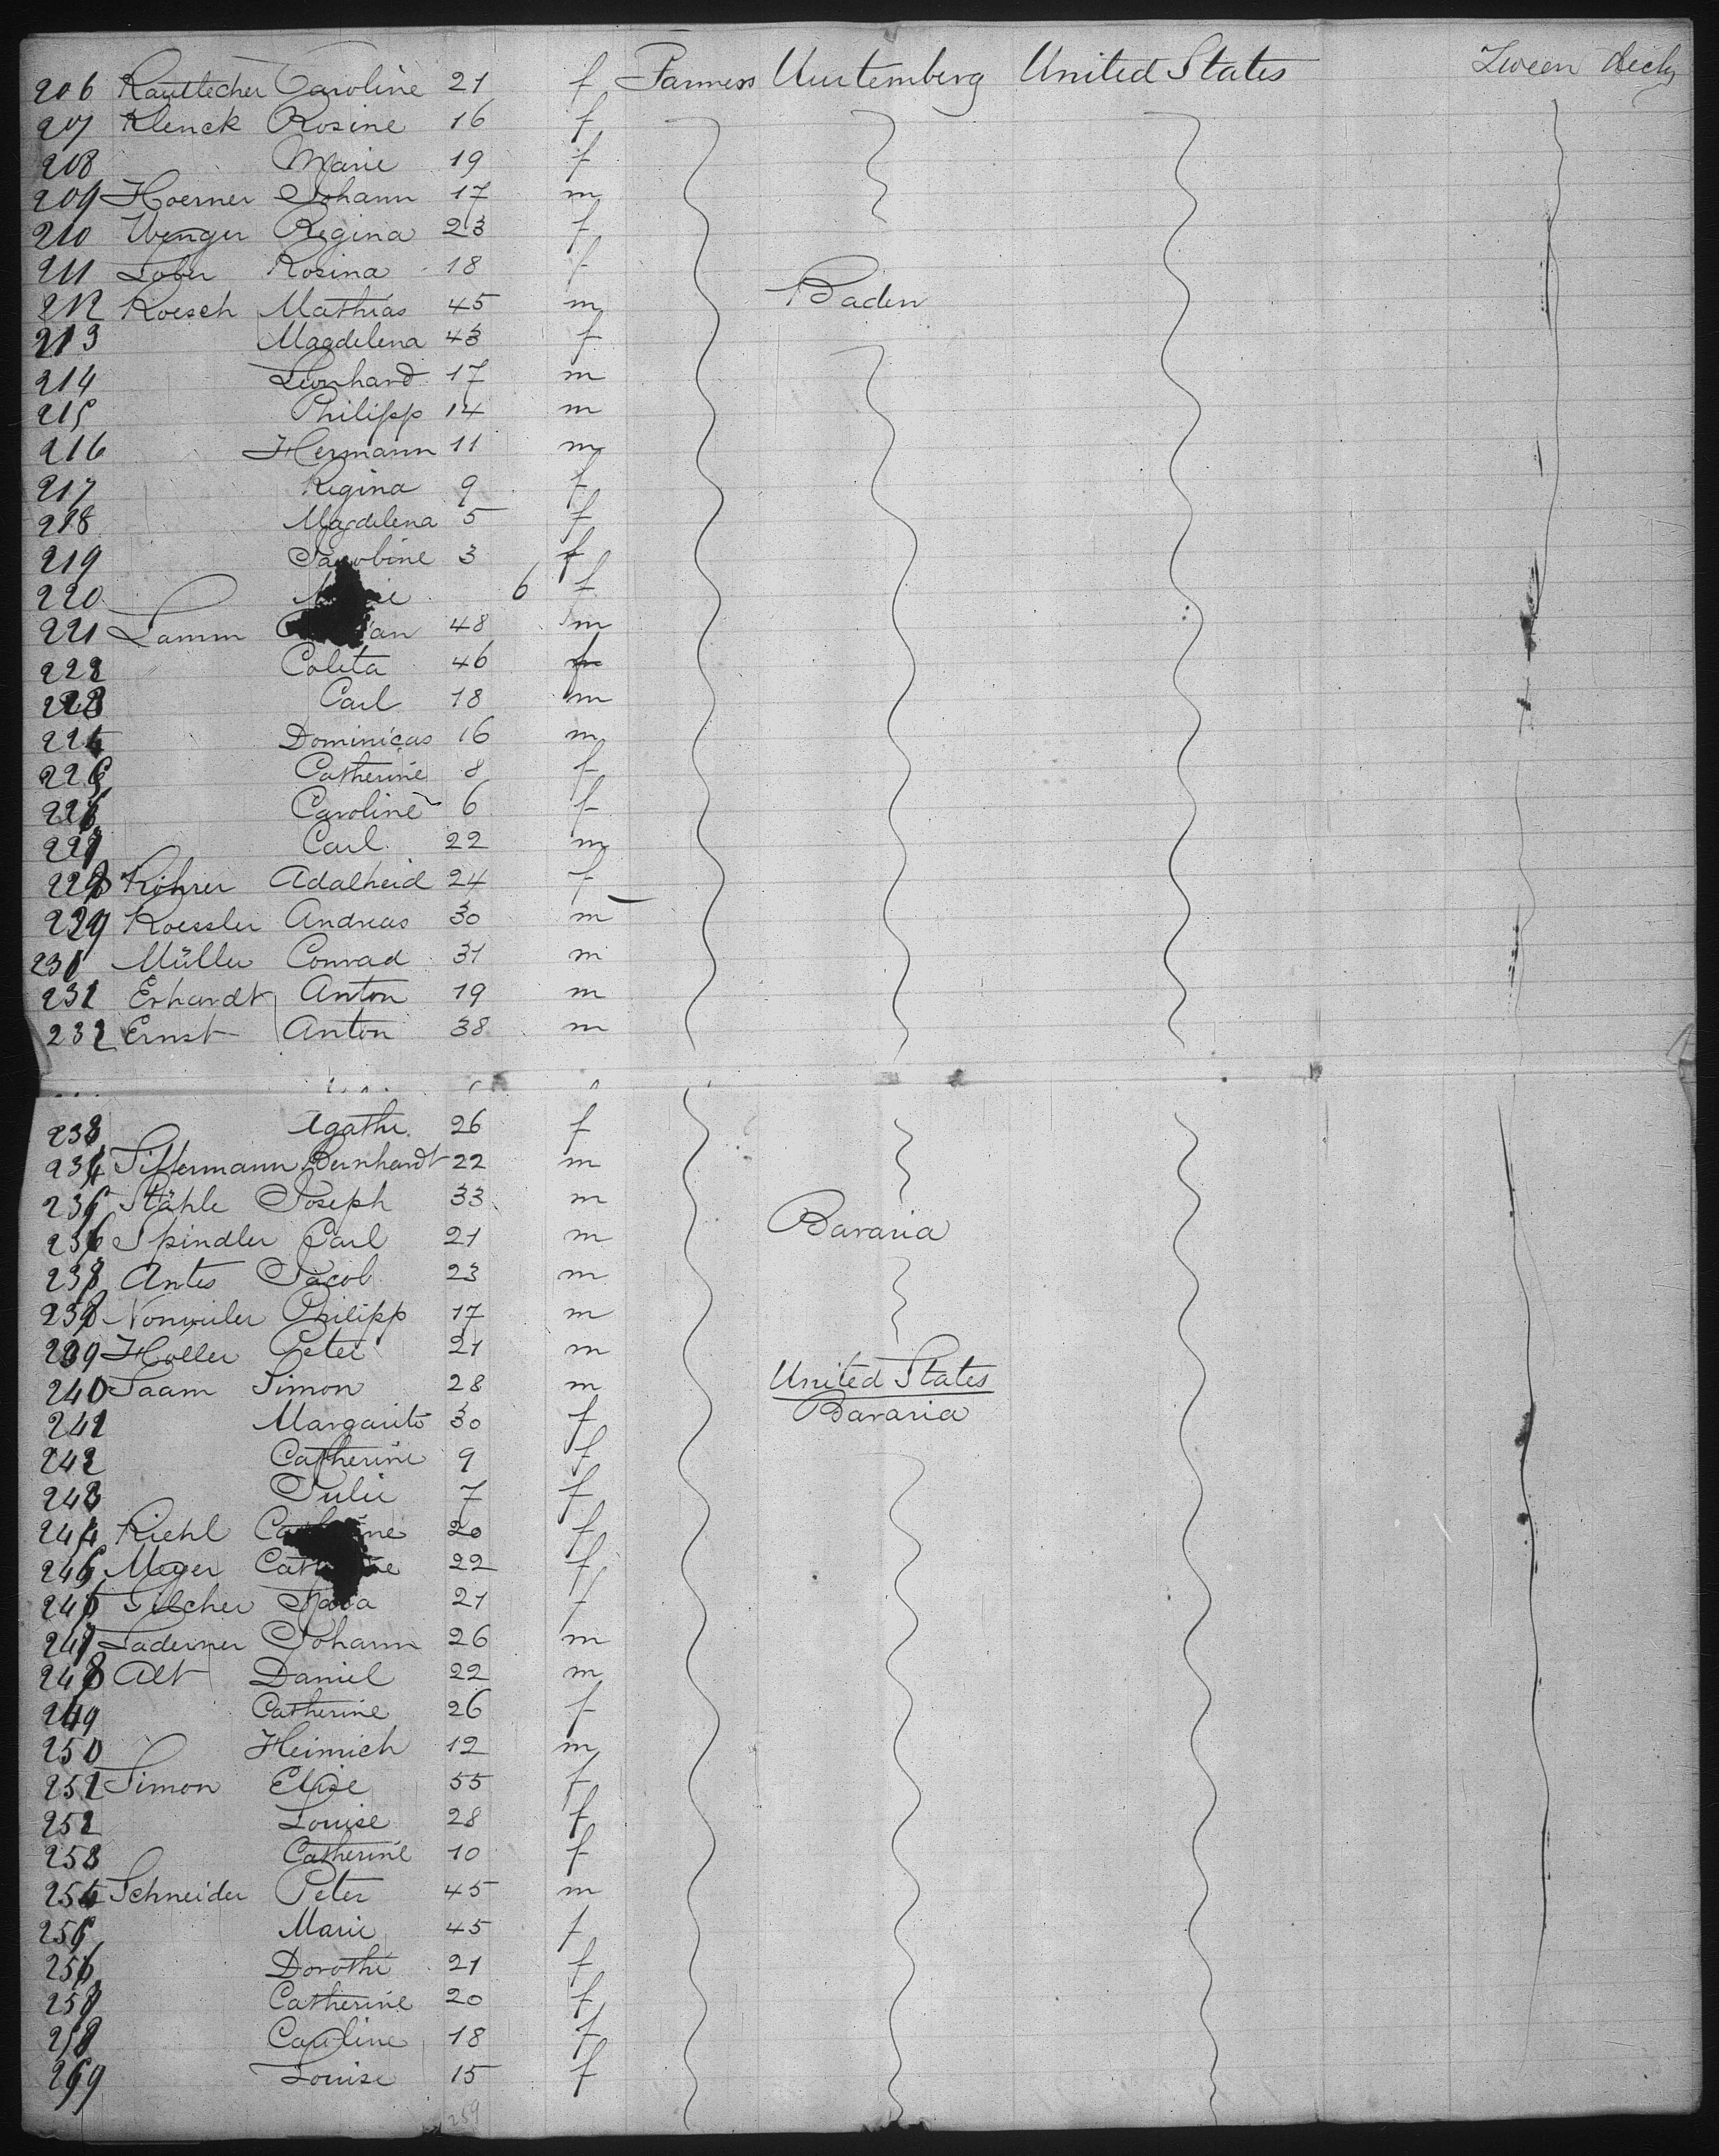 206 Rautlecher Caroline 21 f Farmess Wurtemberg United States Tween decks
207 Klenck Rosine 16 f
208 Marie 19 f
209 Hoerner Johann 17 m
210 Wenger Regina 23 f
211 Lober Rosina 18 f
212 Roesch Mathias 45 m Baden
213 Magdelena 43 f
214 Leonhard 17 m
215 Philipp 14 m
216 Hermann 11 m
217 Regina 9 f
218 Magdelena 5 f
219 Jacobine 3 f
220 6 f
221 Lamm 48 m
222 Coleta 46 f
223 Carl 18 m
224 Dominicus 16 m
225 Catherine 8 f
226 Caroline 6 f
227 Carl 22 m
228 Röhrer Adalheid 24 f
229 Koessler Andreas 30 m
230 Müller Conrad 31 m
231 Erhardt Anton 19 m
232 Ernst Anton 38 m
233 Agathe 26 f
234 Bernhardt 22 m
235 Stähle Joseph 33 m
236 Spindler Carl 21 m Bavaria
237 Antes Jacob 23 m
238 Nonweiler Philipp 17 m
239 Holler Peter 21 m
240 Saam Simon 28 m United States
241 Margarite 30 f Bavaria
242 Catherine 9 f
243 Julie 7 f
244 Riehl 20 f
245 Meyer 22 f
246 Gilcher 21 f
247 Laderner Johann 26 m
248 Alt Daniel 22 m
249 Catherine 26 f
250 Heinrich 12 m
251 Simon Elise 55 f
252 Louise 28 f
253 Catherine 10 f
254 Schneider Peter 45 m
255 Marie 45 f
256 Dorothe 21 f
257 Catherine 20 f
258 Caroline 18 f
259 Louise 15 f
259